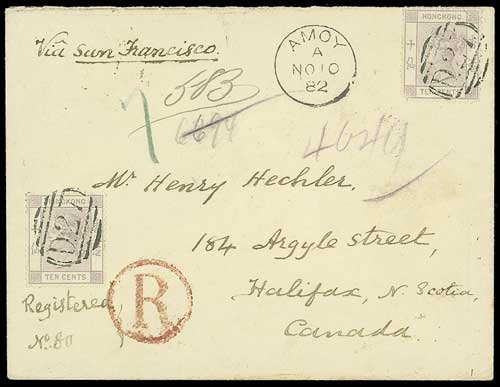 Viâ San Francisco.
583
7
6694
AMOY
A
NO 10
82
HONGKONG
D27
TEN CENTS
Mr. Henry Hechler.
184 Argyle Street,
Halifax, N. Scotia,
Canada.
HONGKONG
D27
TEN CENTS
R
Registered
No. 80